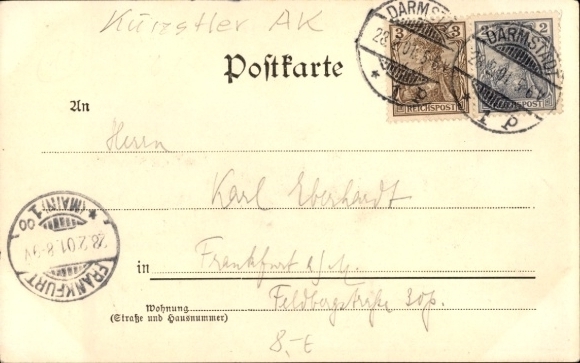 Künstler AK
DARMSTADT
3 3
REICHSPOST
* 1 p
DARMSTADT
2
REICHSPOST
* 1 p
Postkarte
An
Herrn
Karl Eberhardt
FRANKFURT
(MAIN) 1
28.2.01. 8-9V
in Frankfurt a/M.
Wohnung
(Straße und Hausnummer)
Feldbergstraße 30p.
8,-€